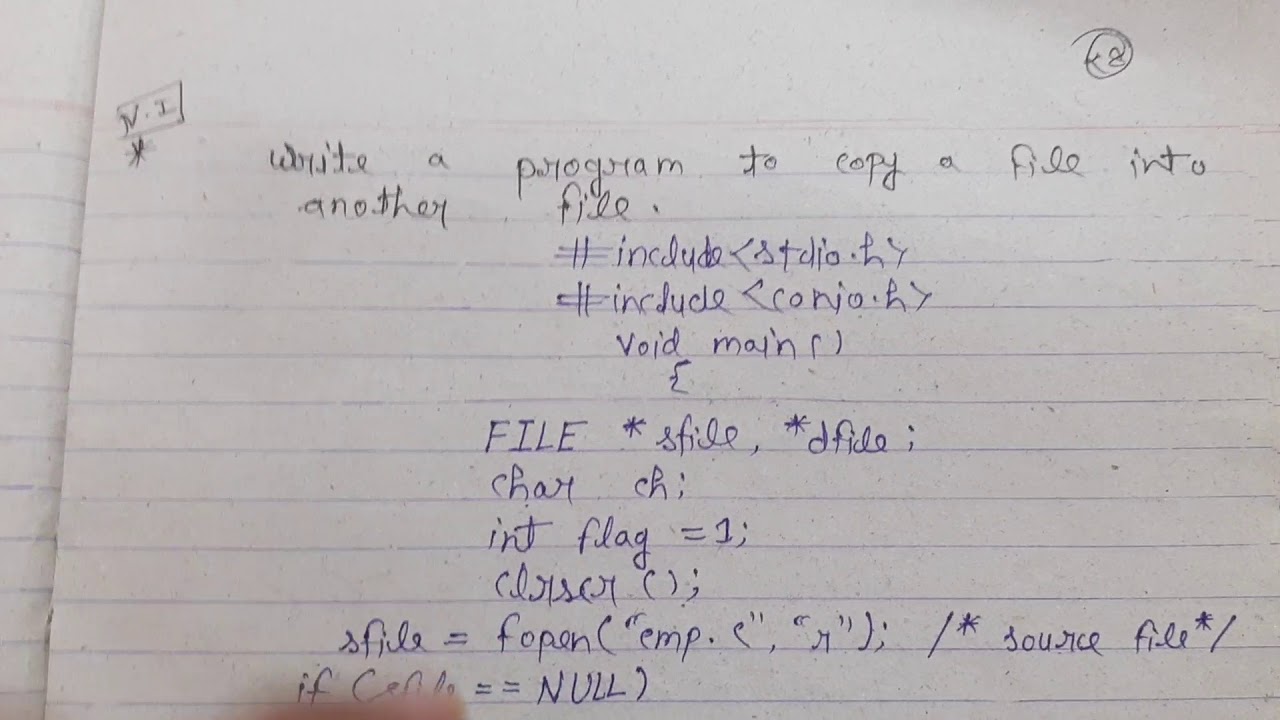 V.I
*
write a program to copy a file into
another file.
# include<stdio.h>
# include<conio.h>
void main()
{
FILE *sfile, *dfile;
char ch;
int flag =1;
clrscr();
sfile = fopen("emp.c", "r"); /* source file*/
if (sfile == NULL)